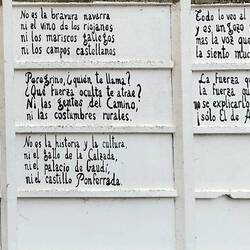 No es la bravura navarra
ni el vino de los riojanos
ni los mariscos gallegos
ni los campos castellanos
Peregrino, ¿quién te llama?
¿Qué fuerza oculta te atrae?
Ni las gentes del Camino,
ni las costumbres rurales.
No es la historia y la cultura,
ni el gallo de la Calzada,
ni el palacio de Gaudí,
ni el castillo Ponferrada.
Todo lo veo al
y es un gozo
mas la voz que
la siento muc
La fuerza qu
la fuerza
no se explicarla
¡sólo El de A